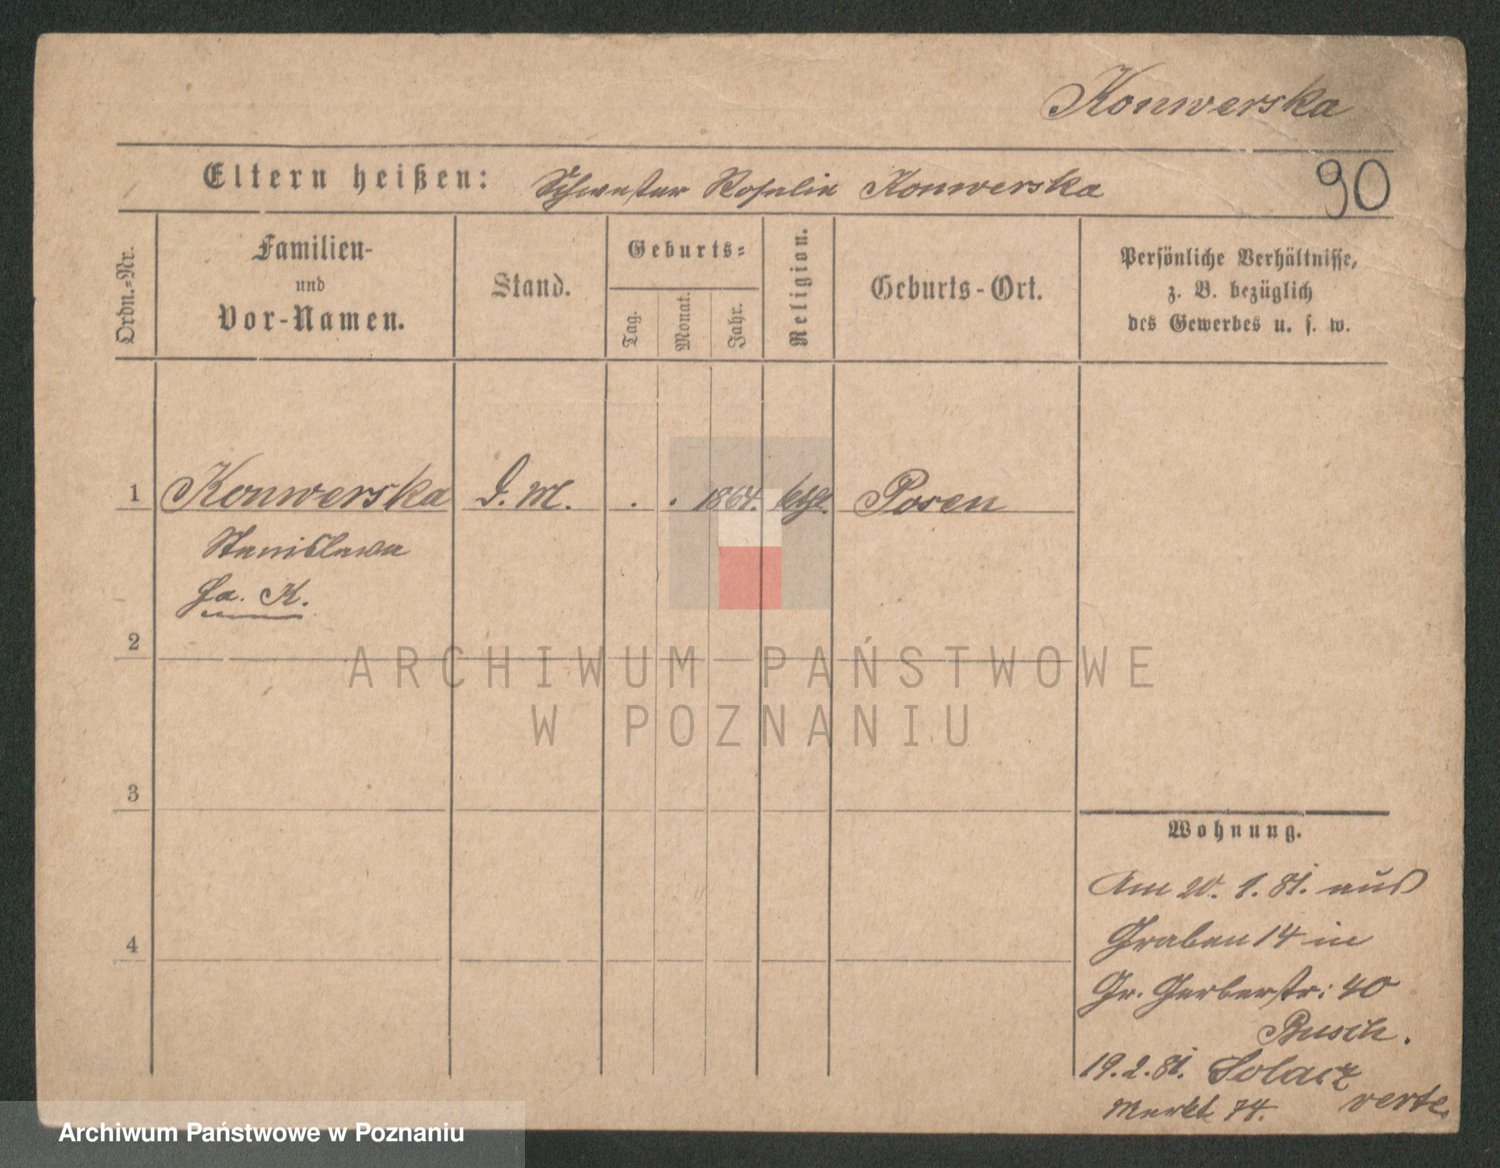 Konwerska
Eltern heißen: Schwester Rosalie Konwerska
90
Ordn.-Nr.
Familien-
und
Vor-Namen.
Stand.
Geburts-
Tag.
Monat.
Jahr.
Religion.
Geburts-Ort.
Persönliche Verhältnisse,
z. B. bezüglich
des Gewerbes u. s. w.
1 Konwerska D. M. . . 1864. kth. Posen
Stanislawa
2
3
4
Wohnung.
Am 20. 1. 81. aus
Graben 14 in
Gr. Gerberstr: 40
Busch.
19. 2. 81. Solacz
Markt 74. verte
ARCHIWUM PAŃSTWOWE
W POZNANIU
Archiwum Państwowe w Poznaniu